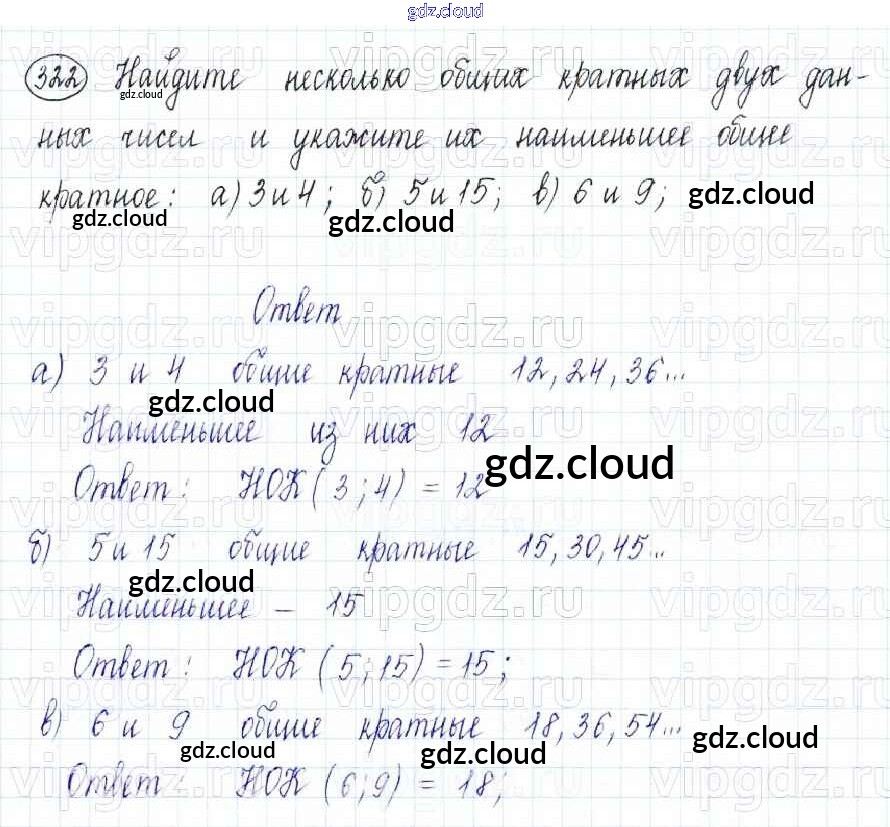 gdz.cloud
322 Найдите несколько общих кратных двух дан-
gdz.cloud
ных чисел и укажите их наименьшее общее
кратное: а) 3 и 4; б) 5 и 15; в) 6 и 9; gdz.cloud
gdz.cloud gdz.cloud
Ответ
а) 3 и 4 общие кратные 12, 24, 36...
gdz.cloud
Наименьшее из них 12
gdz.cloud
Ответ: НОК (3; 4) = 12
б) 5 и 15 общие кратные 15, 30, 45..
gdz.cloud
Наименьшее – 15
Ответ: НОК (5; 15) = 15;
в) 6 и 9 общие кратные 18, 36, 54...
gdz.cloud gdz.cloud gdz.cloud
Ответ: НОК (6; 9) = 18;
vipgdz.ru